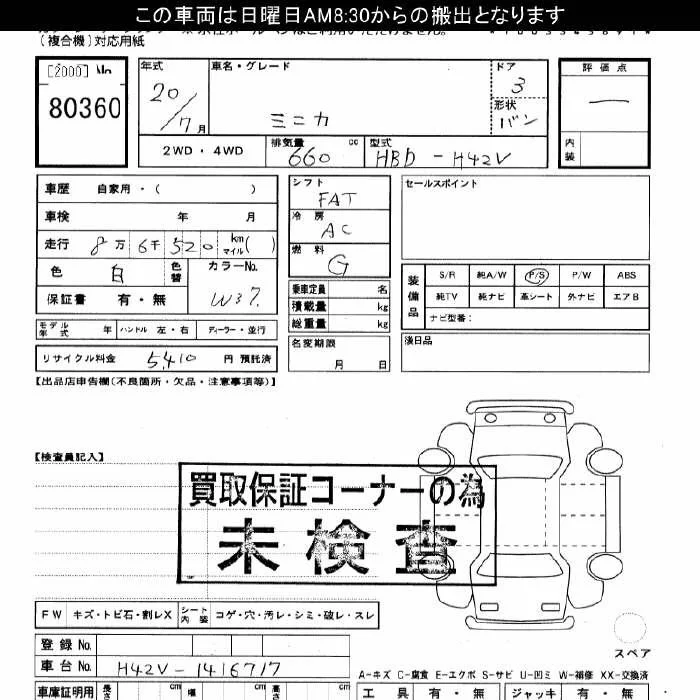 この車両は日曜日AM8:30からの搬出となります
(複合機)対応用紙
[2000] No.
80360
年式
20/7月
車名・グレード
ミニカ
ドア
3
形状
バン
評価点
—
内装
2WD・4WD
排気量
660 cc
型式
HBD-H42V
車歴 自家用・( )
車検 年 月
走行 8万6千520 km マイル( )
色 白 色替
カラーNo.
W37.
保証書 有・無
シフト
FAT
冷房
AC
燃料
G
乗車定員 名
積載量 kg
総重量 kg
名変期限
月 日
セールスポイント
装備品
S/R 純A/W P/S P/W ABS
純TV 純ナビ 革シート 外ナビ エアB
ナビ型番:
モデル年式 年 ハンドル 左・右 ディーラー・並行
リサイクル料金 5,410 円 預託済
【出品店申告欄(不良箇所・欠品・注意事項等)】
【検査員記入】
買取保証コーナーの為
未検査
FW キズ・トビ石・割レX シート内装 コゲ・穴・汚レ・シミ・破レ・スレ
スペア
登録No.
車台No. H42V-1416717
A-キズ C-腐食 E-エクボ S-サビ U-凹ミ W-補修 XX-交換済
車庫証明用 長さ cm 幅 cm 高さ cm
工具 有・無 ジャッキ 有・無